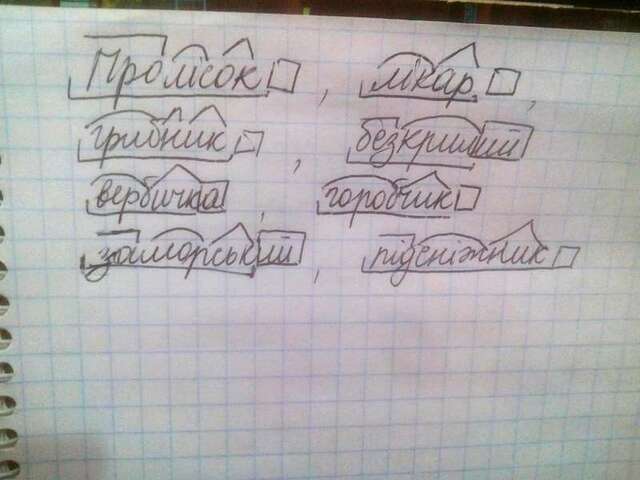 Пролісок , лікар ,
грибник , безкрилий
вербичка , горобчик
заморський , підсніжник